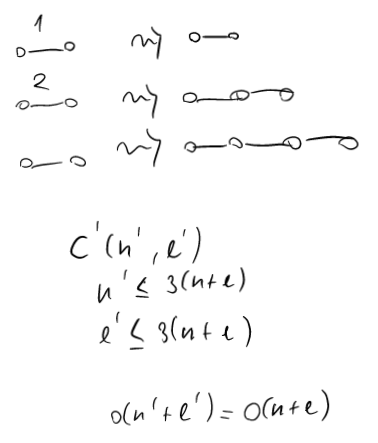 1
2
C'(n', e')
n' ≤ 3(n+e)
e' ≤ 3(n+e)
O(n'+e') = O(n+e)